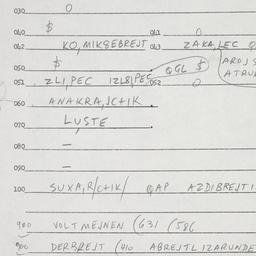 030 0
040 $ 041 0
042 KO, MIKSEBREJT 043 ZAKA, LEC
050 $ QGL $ AROJ S
051 ZLI, PEC IZLSI, PEC 052 0
060 ANAKRA, JC+IK.
070 LUSTE
080 –
090 –
100 SUXA, R/C+IK/ QAP AZDIBREJTI
900 VOLTMEJNEN (631 (586
900 DERBREJT (410 ABREJTLIZARUNDE